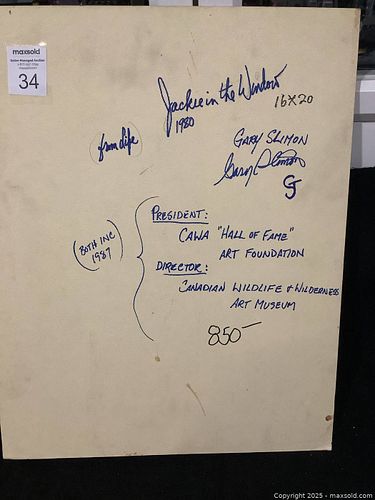 maxsold
Seller Managed Auction
maxsold.com
34
Jackie in the Window
1980
16X20
from life
GARY SLIMON
Gary Slimon
GS
PRESIDENT:
CAWA "HALL OF FAME"
ART FOUNDATION
(BOTH INC
1987)
DIRECTOR:
CANADIAN WILDLIFE & WILDERNESS
ART MUSEUM
850—
Copyright © 2025 - maxsold.com